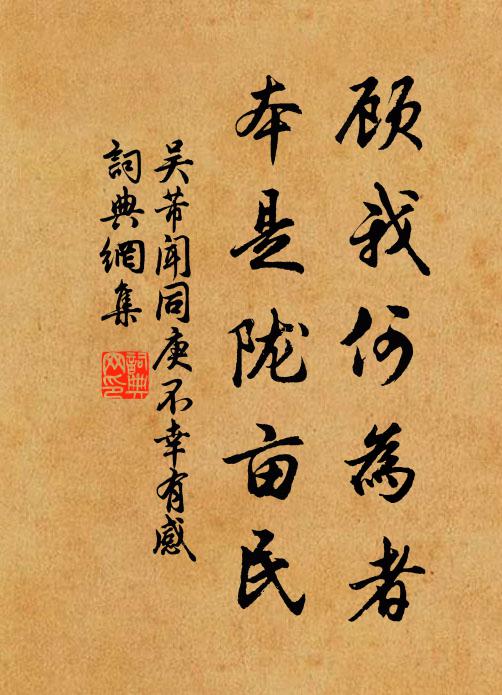 顾我何為者
本是陇亩民
吴芾闻同庚不幸有感
詞典網集
詞典网印